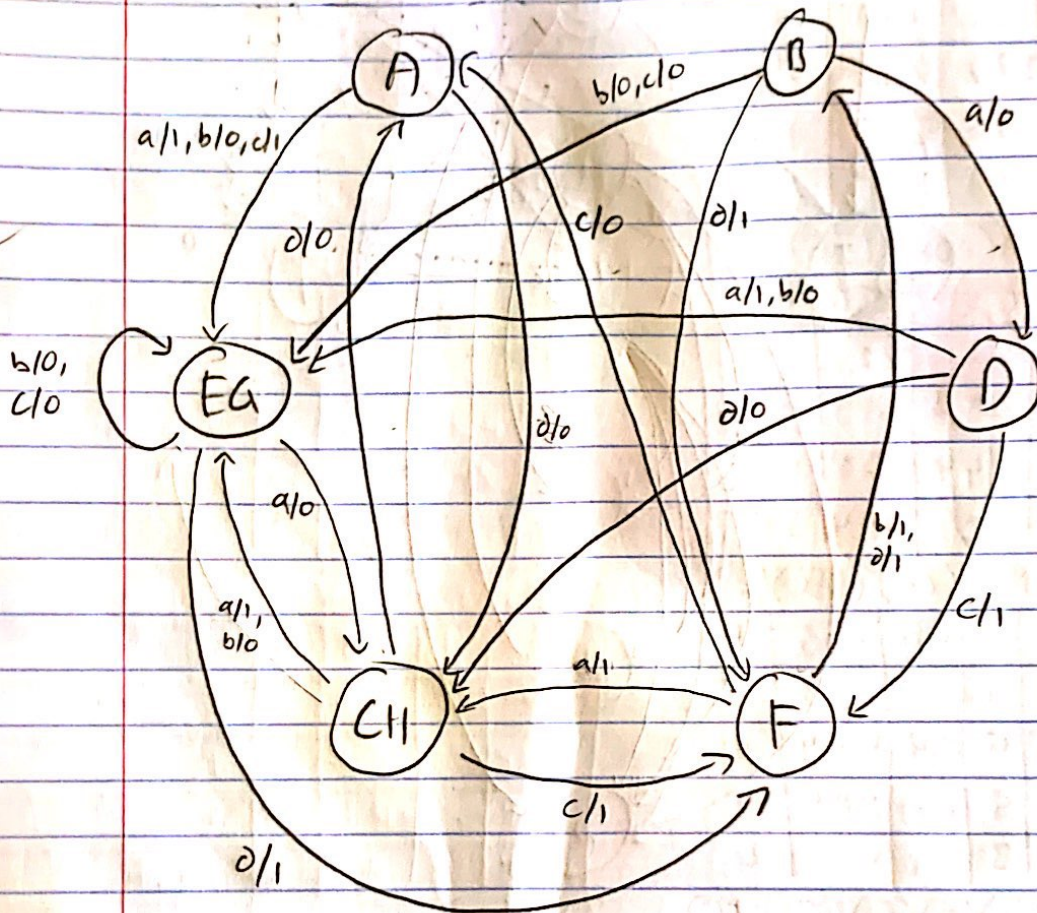 A
B
b/0, c/0
a/0
a/1, b/0, c/1
d/0
c/0
d/1
a/1, b/0
b/0,
c/0
EG
D
d/0
d/0
a/0
b/1,
d/1
a/1,
b/0
c/1
a/1
CH
F
c/1
d/1